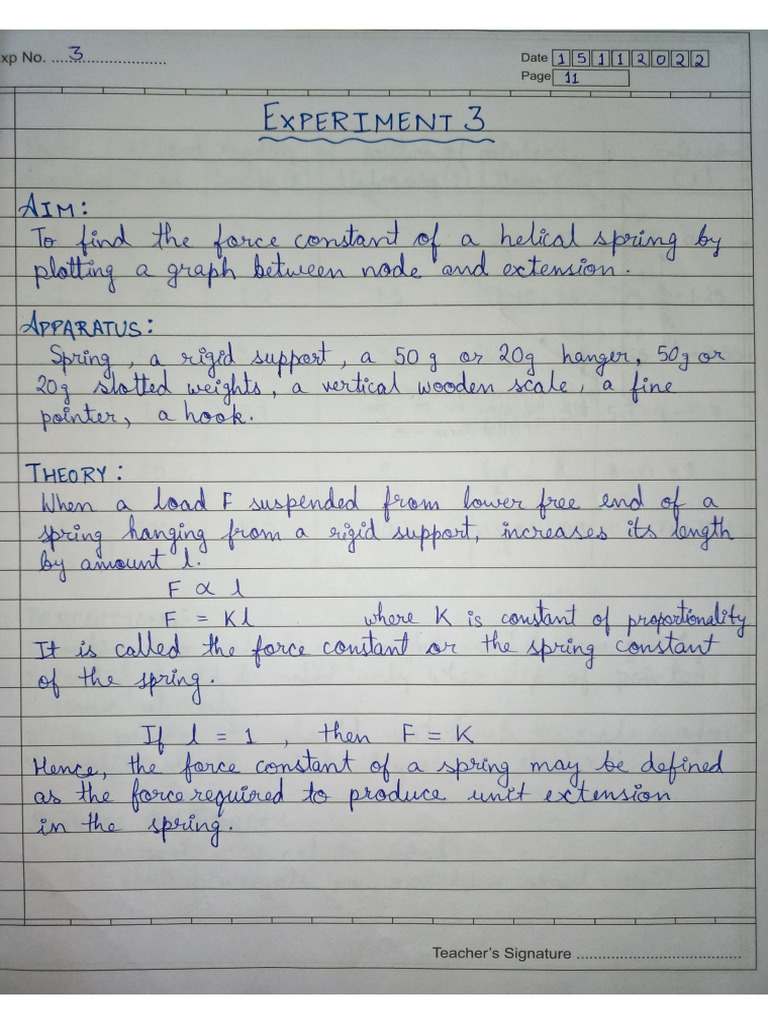 xp No. .....3...................
Date 15112022
Page 11
EXPERIMENT 3
AIM:
To find the force constant of a helical spring by
plotting a graph between node and extension.
APPARATUS:
Spring, a rigid support, a 50 g or 20g hanger, 50g or
20g slotted weights, a vertical wooden scale, a fine
pointer, a hook.
THEORY:
When a load F suspended from lower free end of a
spring hanging from a rigid support, increases its length
by amount l.
F ∝ l
F = Kl where K is constant of proportionality
It is called the force constant or the spring constant
of the spring.
If l = 1, then F = K
Hence, the force constant of a spring may be defined
as the force required to produce unit extension
in the spring.
Teacher's Signature ......................................